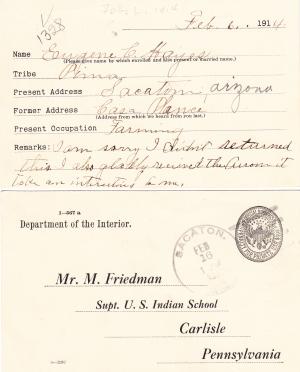 Feb. 6. 1914
1328
Name Eugene C. Hayes
(Please give name by which enrolled and also present or married name.)
Tribe Pima
Present Address Sacaton, arizona
Former Address Casa Blanca
(Address from which we heard from you last.)
Present Occupation Farming
Remarks: I am sorry I didnt returned
this I also gladly received the Arrow it
to me.
1—567 a
Department of the Interior.
SACATON,
FEB
16
Mr. M. Friedman
Supt. U. S. Indian School
Carlisle
Pennsylvania